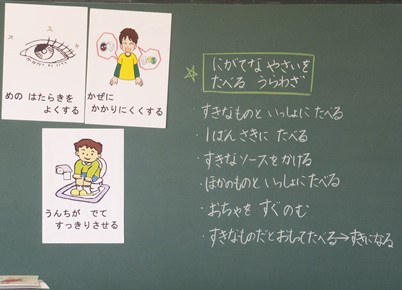 めの はたらきを
よくする
かぜに
かかりにくくする
うんちが でて
すっきりさせる
にがてな やさいを
たべる うらわざ
・すきなものと いっしょに たべる
・1ばん さきに たべる
・すきなソースをかける
・ほかのものと いっしょにたべる
・おちゃを すぐのむ
・すきなものだとおもってたべる→すきになる